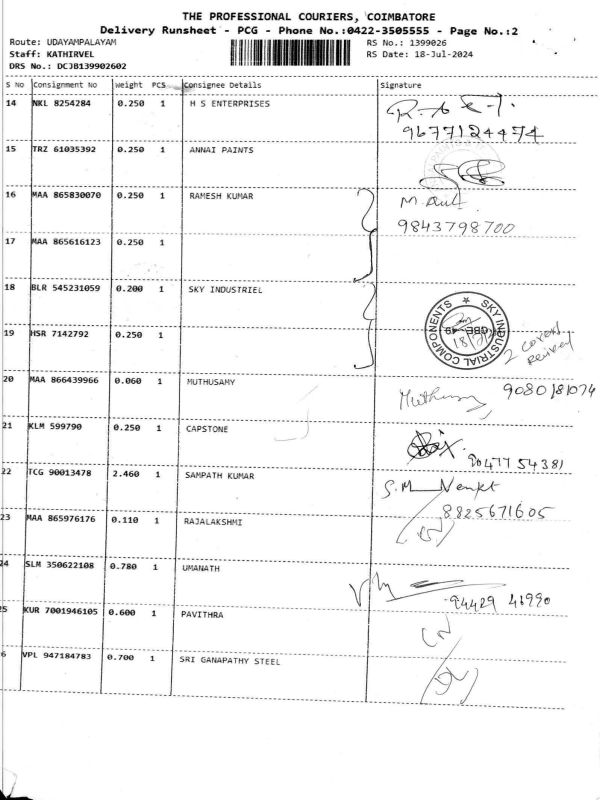 THE PROFESSIONAL COURIERS, COIMBATORE
Delivery Runsheet - PCG - Phone No.:0422-3505555 - Page No.:2
Route: UDAYAMPALAYAM RS No.: 1399026
Staff: KATHIRVEL RS Date: 18-Jul-2024
DRS No.: DCJB139902602
S No Consignment No Weight PCS Consignee Details Signature
14 NKL 8254284 0.250 1 H S ENTERPRISES
9677124474
15 TRZ 61035392 0.250 1 ANNAI PAINTS
16 MAA 865830070 0.250 1 RAMESH KUMAR
9843798700
17 MAA 865616123 0.250 1
18 BLR 545231059 0.200 1 SKY INDUSTRIEL
SKY INDUSTRIAL COMPONENTS
CBE - 49
2 covers
Received
19 HSR 7142792 0.250 1
20 MAA 866439966 0.060 1 MUTHUSAMY
Muthusamy 9080181074
21 KLM 599790 0.250 1 CAPSTONE
9047754381
22 TCG 90013478 2.460 1 SAMPATH KUMAR
S.M Venkt
8825671605
23 MAA 865976176 0.110 1 RAJALAKSHMI
24 SLM 350622108 0.780 1 UMANATH
94429 46990
25 KUR 7001946105 0.600 1 PAVITHRA
6 VPL 947184783 0.700 1 SRI GANAPATHY STEEL